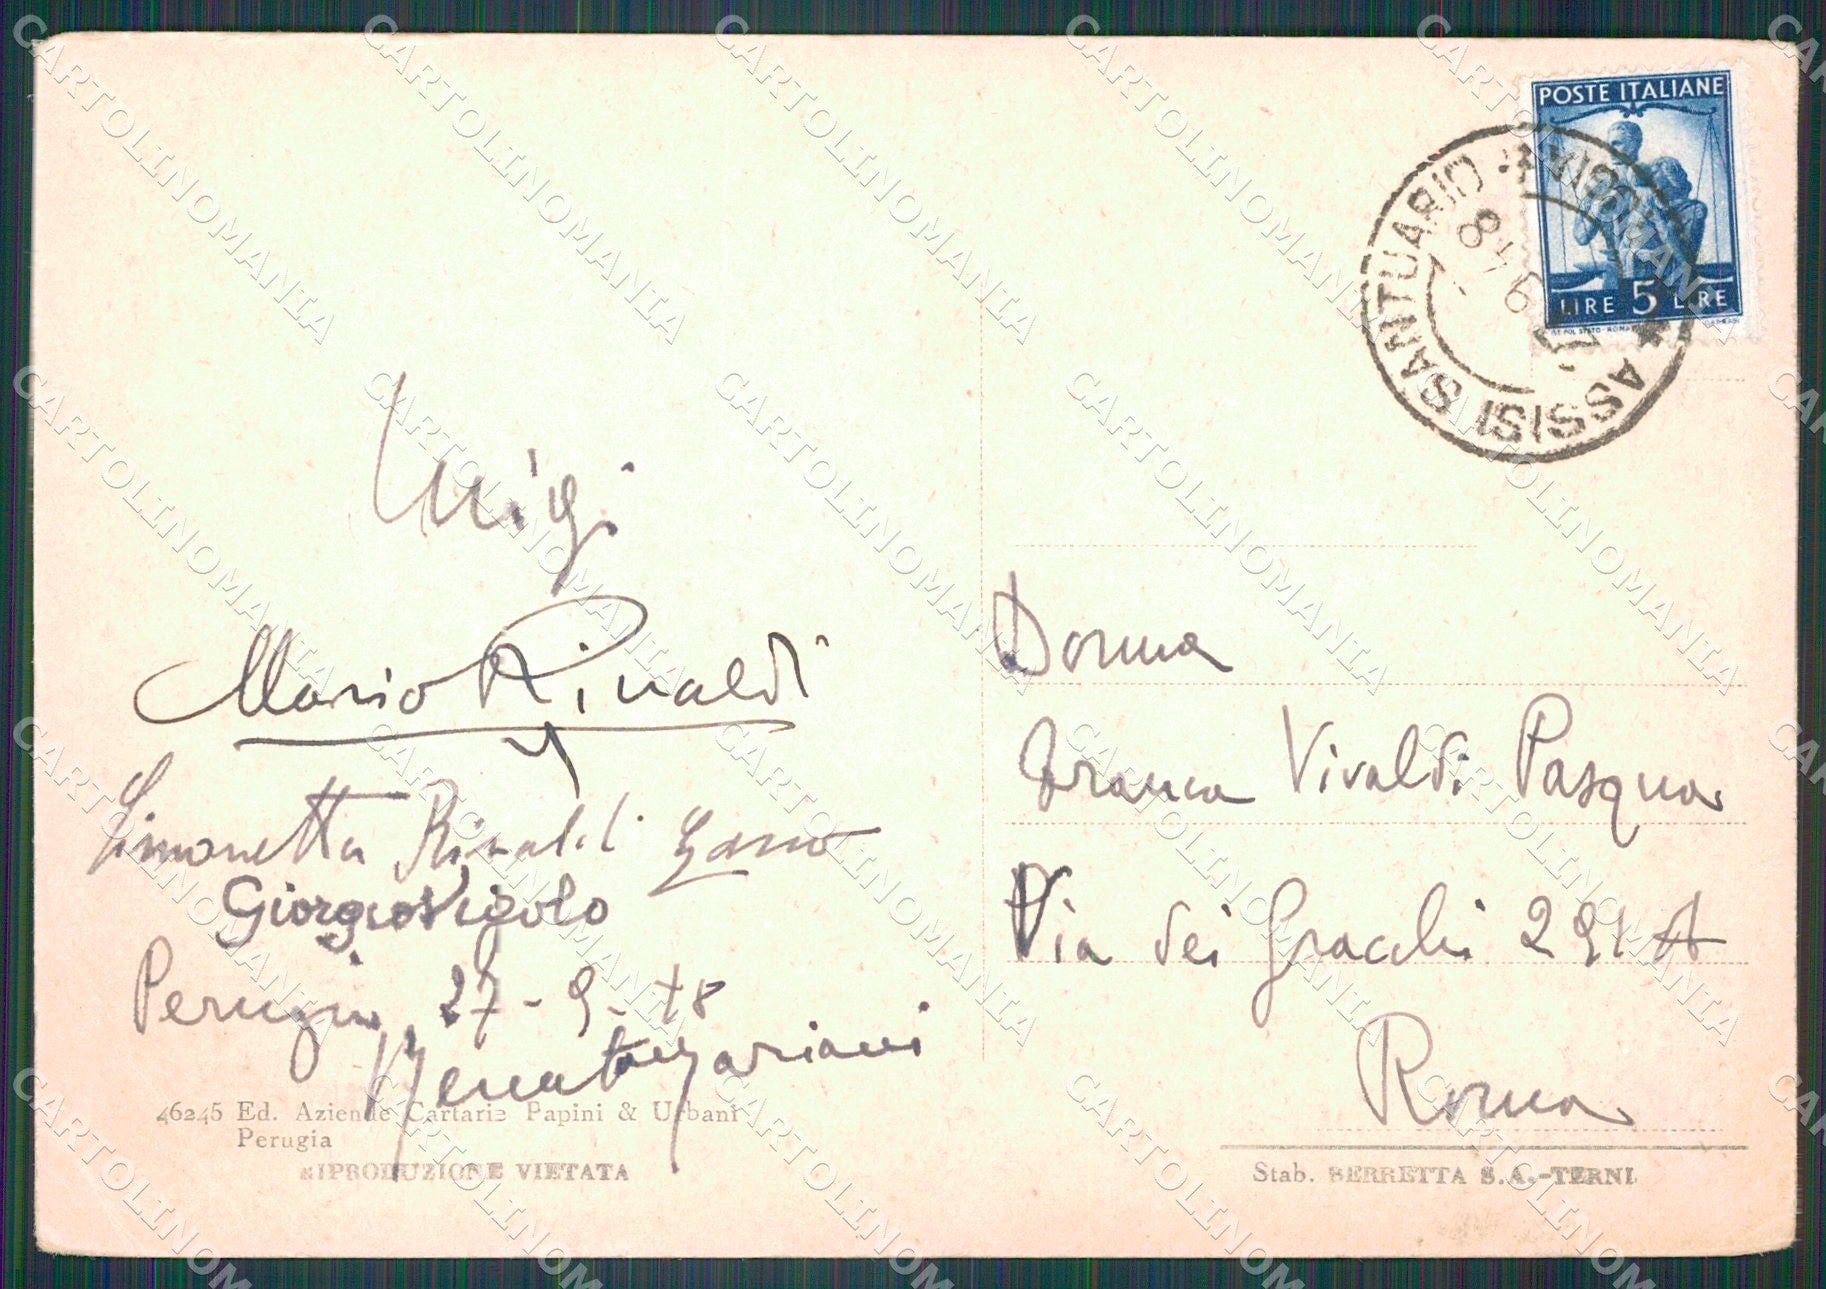 POSTE ITALIANE
LIRE 5 LIRE
ASSISI SANTUARIO
9.48
Luigi
Mario Rinaldi
Simonetta Rinaldi
Giorgio Vigolo
Perugia, 27-9-48
Renato Mariani
46245 Ed. Aziende Cartarie Papini & Urbani
Perugia
RIPRODUZIONE VIETATA
Donna
Franca Vivaldi Pasqua
Via dei Gracchi 291 A
Roma
Stab. BERRETTA S.A.-TERNI
CARTOLINOMANIA